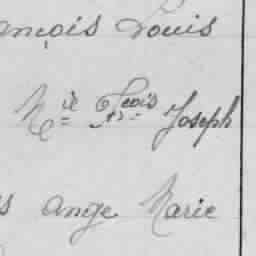 ançois Louis
Mie Frçois Joseph
s Ange Marie